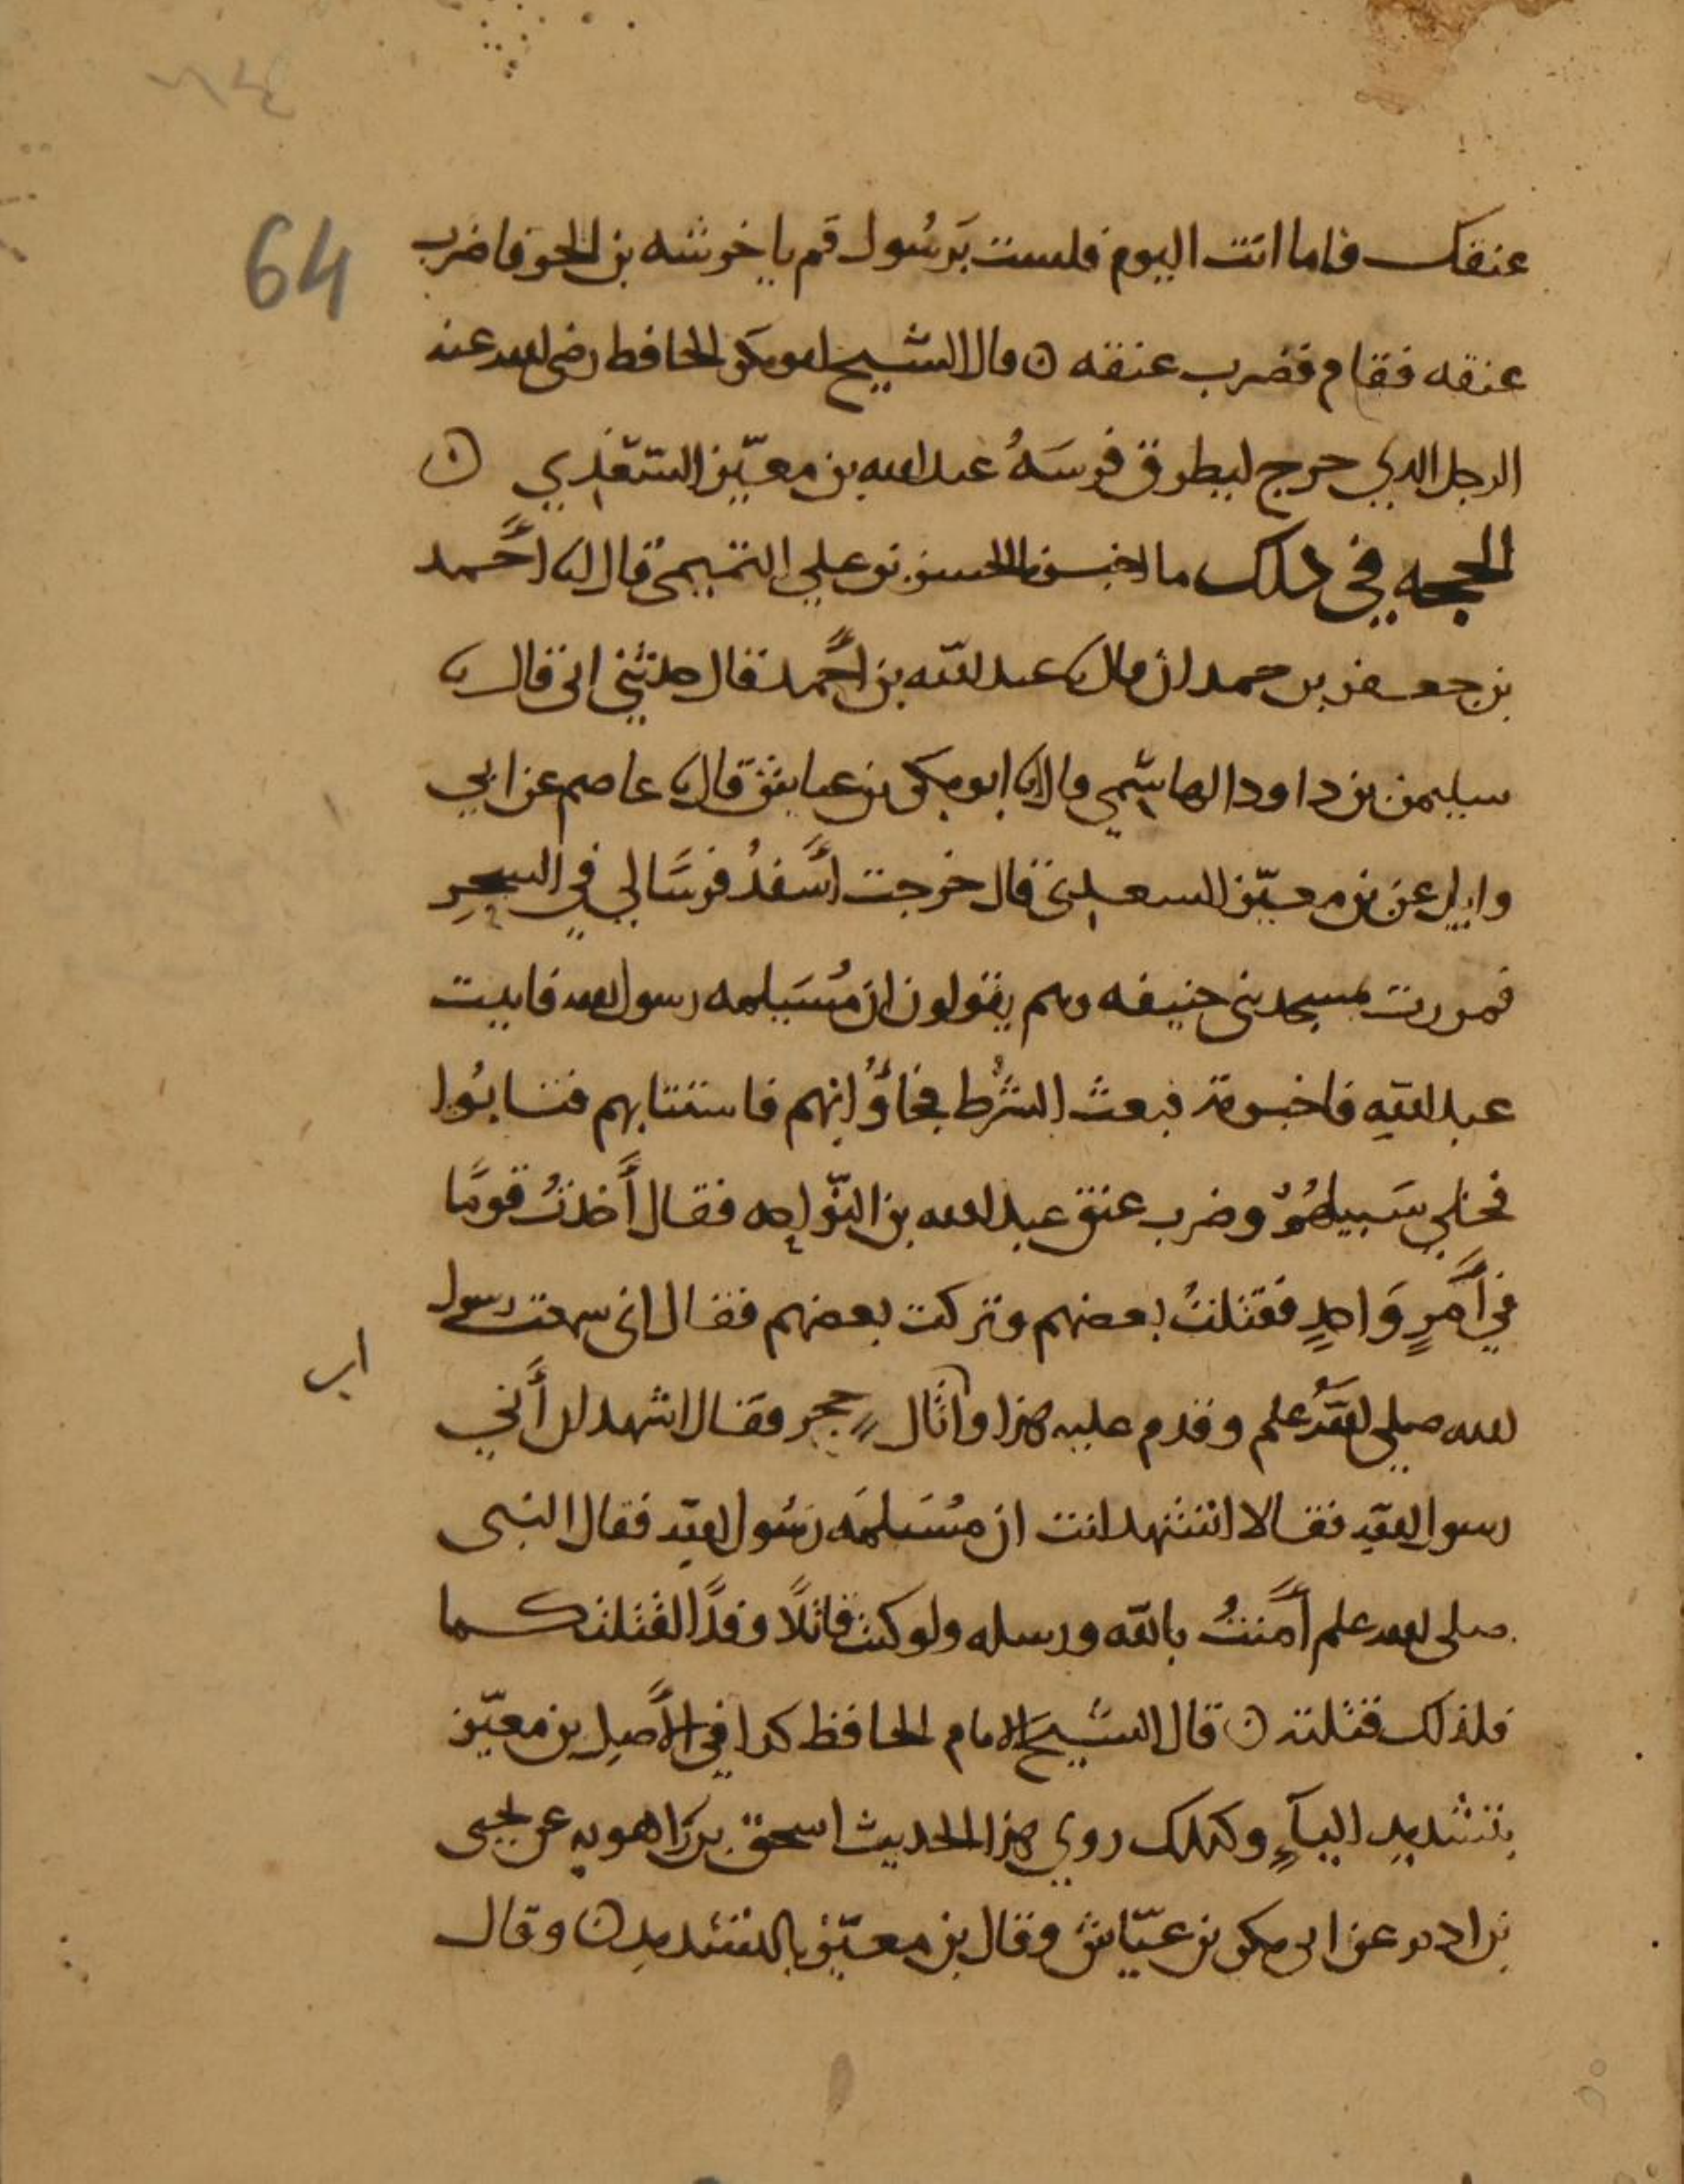 64
عنقك فاما انت اليوم فلست برَسُول قم يا خرشه بن الحر فاضرب
عنقه فقام فضرب عنقه ن قال الشيخ ابو بكر الحافظ رضي الله عنه
الرجل الذي خرج ليطرق فرسَهُ عبد الله بن معيّز السَّعْدِي ن
الحجه في ذلك ما اخبرنا الحسن بن علي التميمي قال انا أحمد
بن جعفر بن حمدان قال نا عبد الله بن أحمد قال حدثني ابي قال نا
سليمن بن داود الهاشمي قال نا ابو بكر بن عياش قال نا عاصم عن ابي
وايل عن بن معيّز السعدي قال خرجت أَسْفِدُ فرسًا لي في السحرِ
فمررت بمسجد بني حنيفه وهم يقولون ان مُسَيلمه رسول الله فاتيت
عبد اللهِ فاخبرته فبعث الشُّرَط فجاؤُا بهم فاستتابهم فتابُوا
فخلي سَبيلهُمْ وضرب عنق عبد الله بن النَّوّاحه فقال أَخذتُ قومًا
في أَمْرٍ وَاحدٍ فقتلتُ بعضهم وتركت بعضهم فقال اني سمعت رسول
الله صلى الله علم وقدم عليه هذا واثَال بن حجر فقال اشهدان أَني
اب
رسول الله فقالا اتشهد انت ان مُسَيلمَه رَسُول الله فقال النبى
صلى الله علم أمَنتُ بالله ورسله ولو كنت قاتلًا وفدًا لقتلتكما
فلذلك قتلته ن قال الشيخ الامام الحافظ كذا في الأَصل بن معيّز
بتشديد اليآءِ وكذلك روي هذا الحديث اسحق بن رَاهويه عن يحيى
بن ادم عن ابي بكر بن عيّاش وقال بن معيّز بالتشديد ن وقال